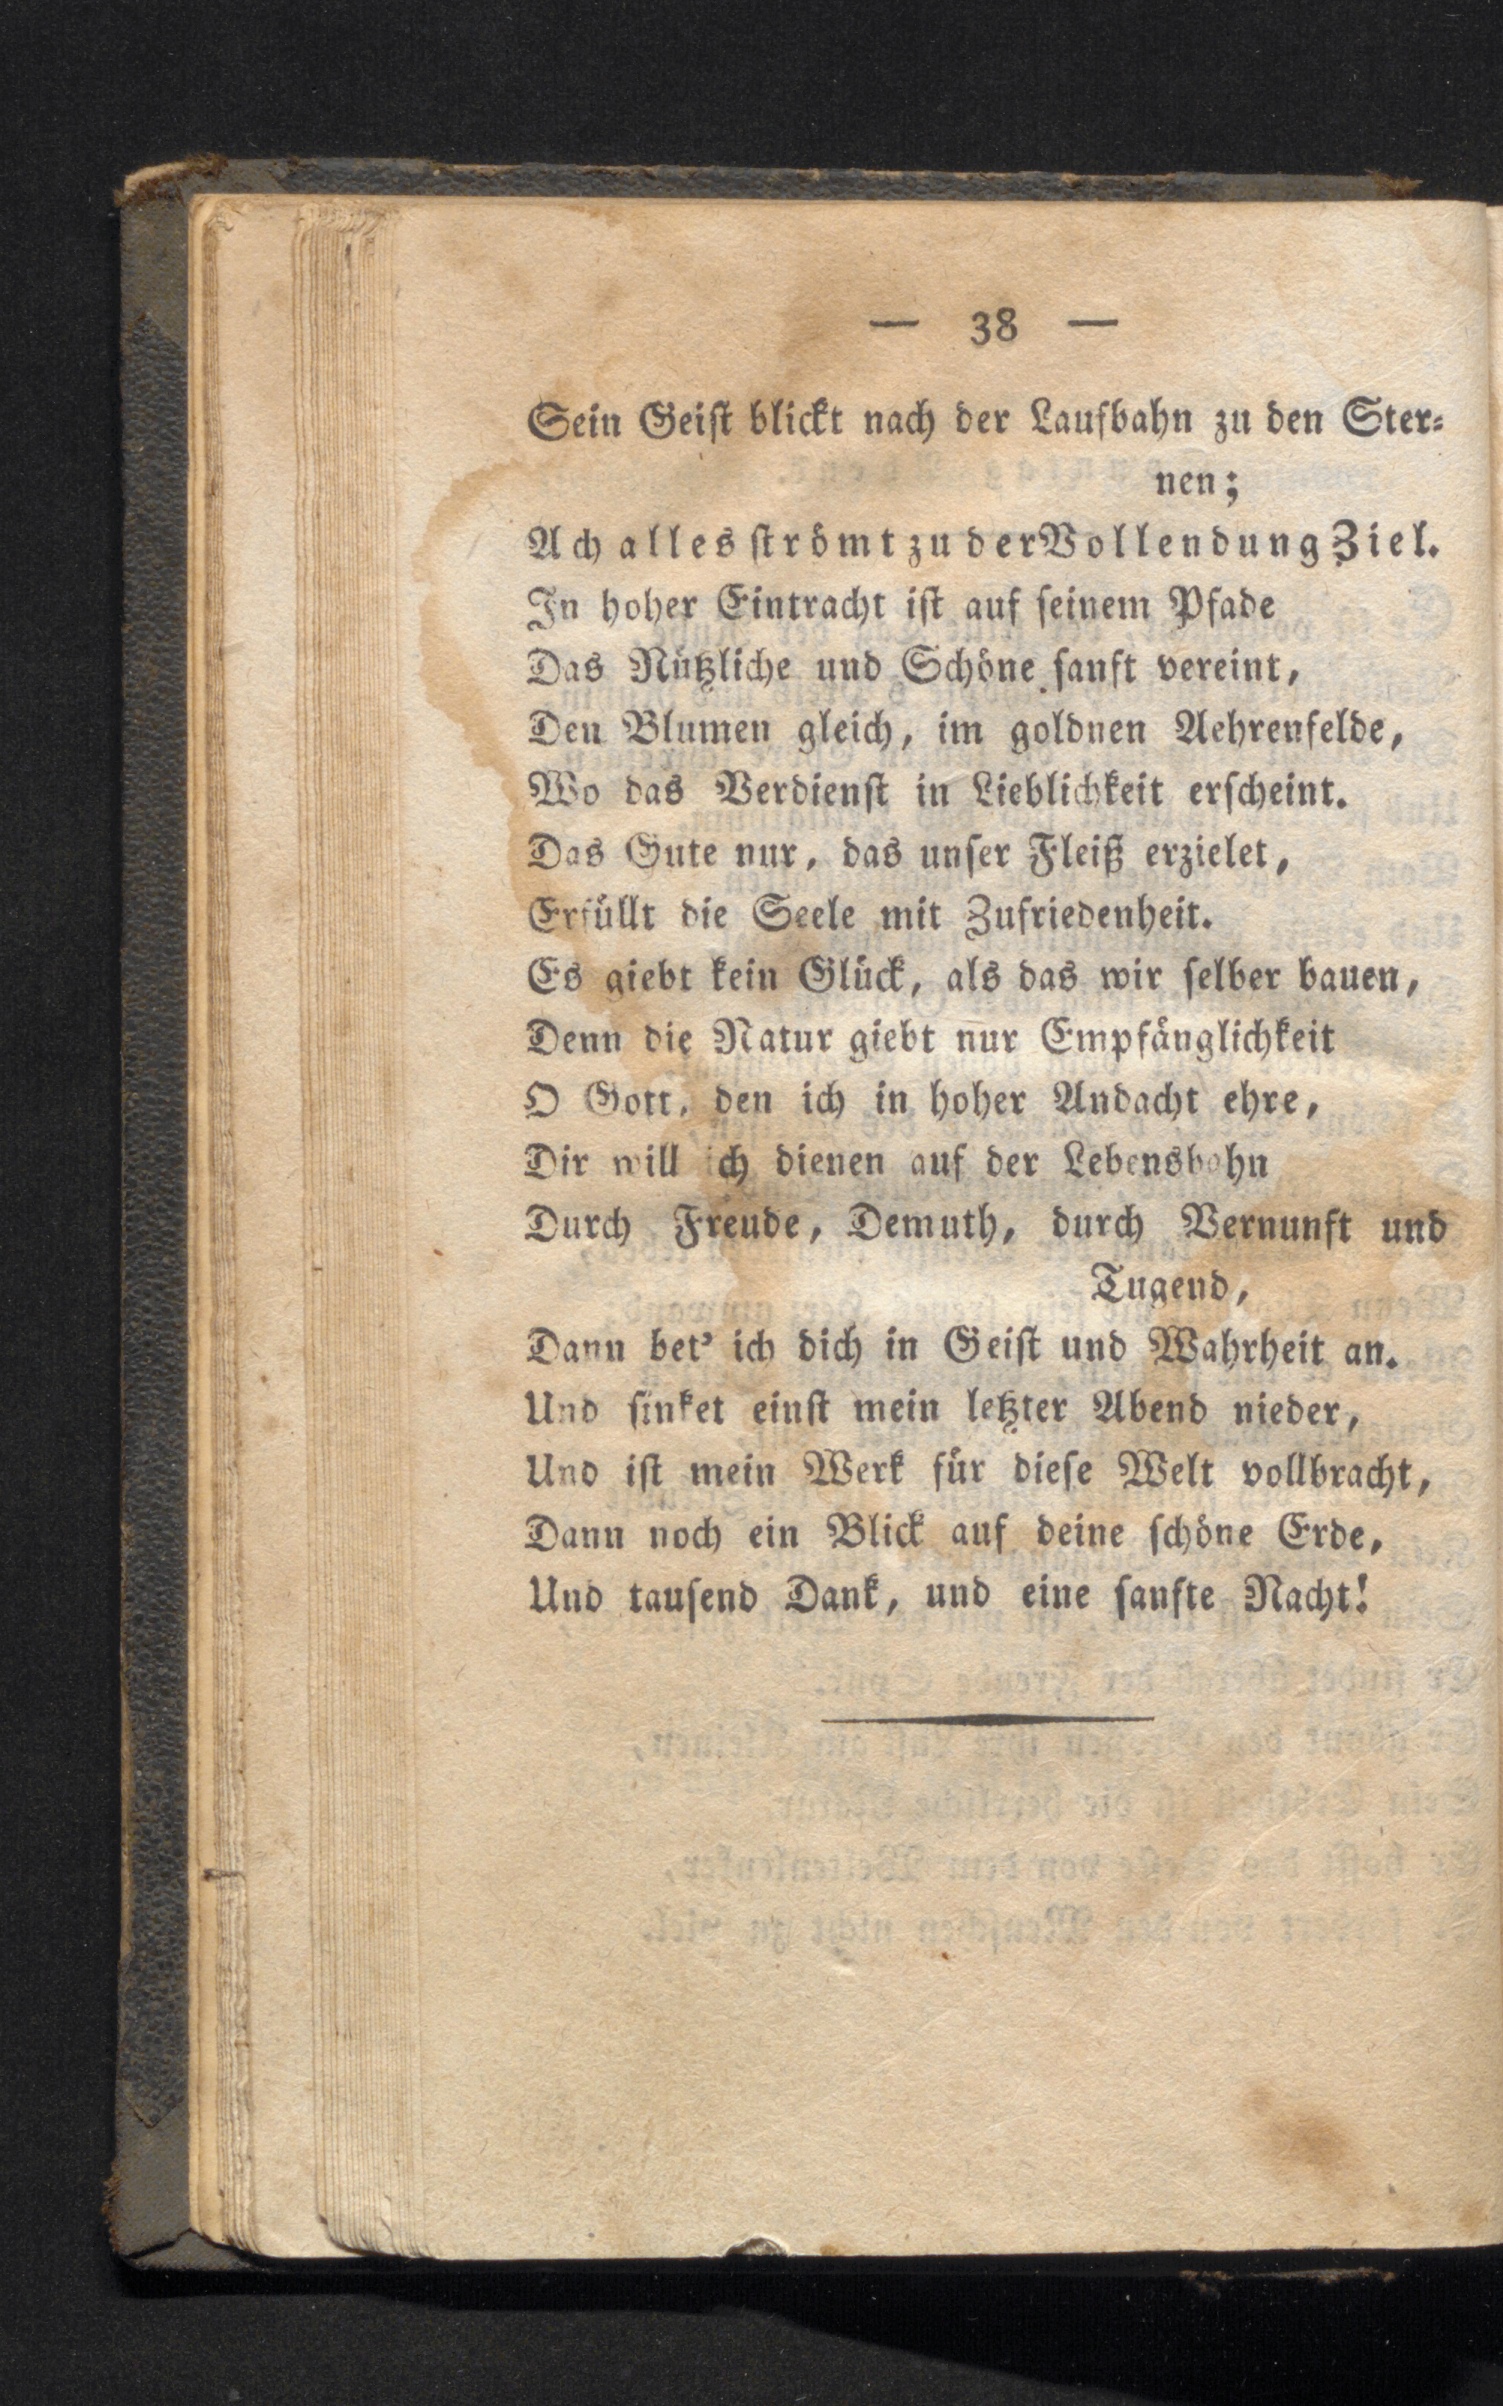 — 38 —
Sein Geiſt blickt nach der Laufbahn zu den Ster⸗
nen;
Ach alles ſtrömt zu der Vollendung Ziel.
In hoher Eintracht iſt auf ſeinem Pfade
Das Nützliche und Schöne ſanft vereint,
Den Blumen gleich, im goldnen Aehrenfelde,
Wo das Verdienſt in Lieblichkeit erſcheint.
Das Gute nur, das unſer Fleiß erzielet,
Erfüllt die Seele mit Zufriedenheit.
Es giebt kein Glück, als das wir ſelber bauen,
Denn die Natur giebt nur Empfänglichkeit
O Gott, den ich in hoher Andacht ehre,
Dir will ich dienen auf der Lebensbahn
Durch Freude, Demuth, durch Vernunft und
Tugend,
Dann bet' ich dich in Geiſt und Wahrheit an.
Und ſinket einſt mein letzter Abend nieder,
Und iſt mein Werk für dieſe Welt vollbracht,
Dann noch ein Blick auf deine ſchöne Erde,
Und tauſend Dank, und eine ſanfte Nacht!